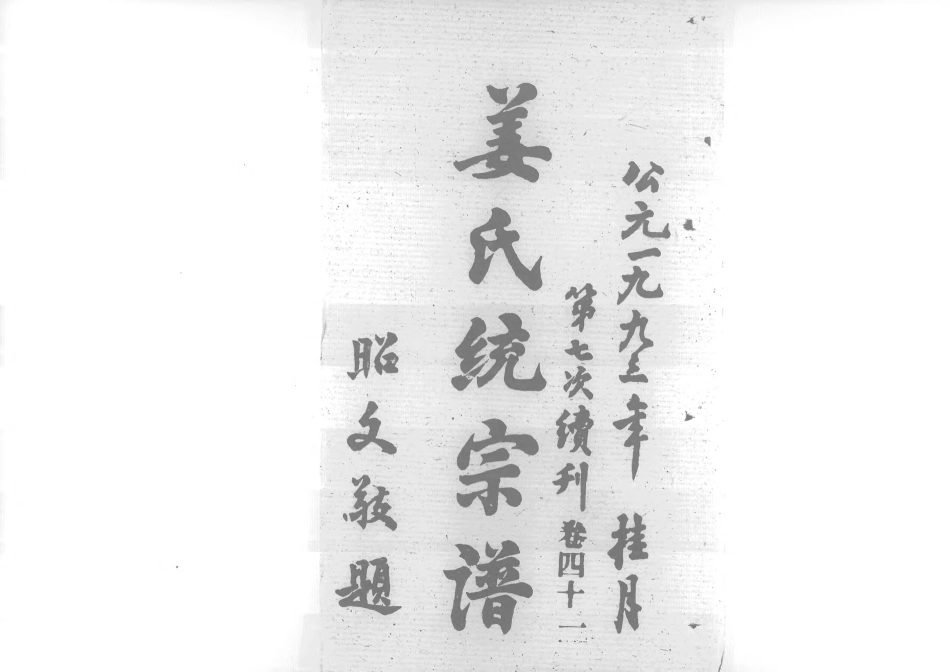 公元一九九三年 桂月
第七次續刊 卷四十二
姜氏统宗谱
昭文敬題